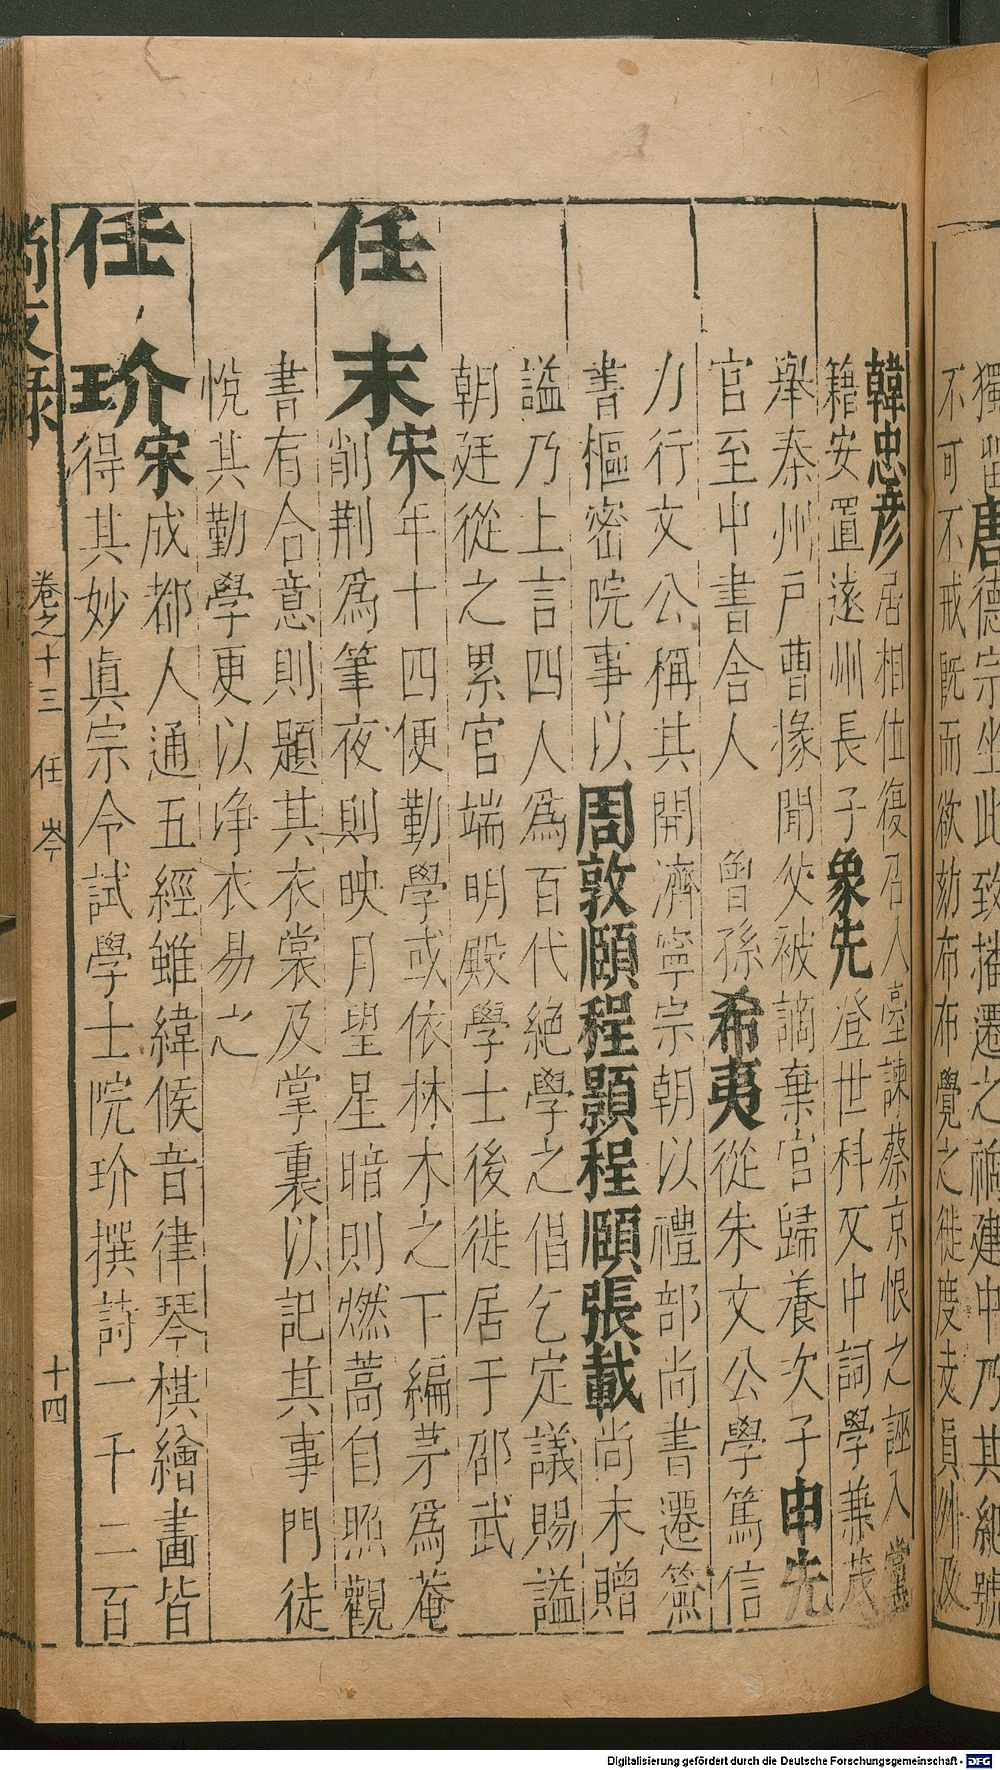 獨留唐德宗坐此致播遷之禍建中乃其紀號
不可不戒旣而欲劾布布覺之徙度支員外及
韓忠彦居相位復召入臺諫蔡京恨之誣入黨
籍安置遠州長子象先登世科又中詞學兼茂
舉秦州戶曹掾聞父被謫棄官歸養次子申先
官至中書舍人　曾孫希夷從朱文公學篤信
力行文公稱其開濟寧宗朝以禮部尚書遷簽
書樞密院事以周敦頤程顥程頤張載尚未贈
謚乃上言四人爲百代絕學之倡乞定議賜謚
朝廷從之累官端明殿學士後徙居于邵武
任末宋年十四便勤學或依林木之下編茅爲菴
削荆爲筆夜則映月望星暗則燃蒿自照觀
書有合意則題其衣裳及掌裏以記其事門徒
悅其勤學更以淨衣易之
任玠宋成都人通五經雖緯候音律琴棋繪畫皆
得其妙眞宗令試學士院玠撰詩一千二百
尚友錄　卷之十三　任　岑　十四
Digitalisierung gefördert durch die Deutsche Forschungsgemeinschaft - DFG